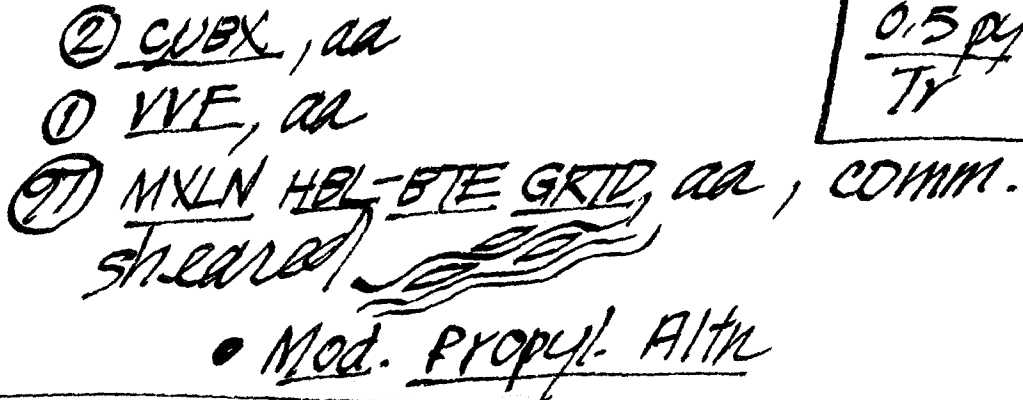 ② CUBX, aa
① VVF, aa
97 MXLN HBL-BTE GRTD, aa, comm.
sheared
• Mod. Propyl. Altn
0.5 py
Tr